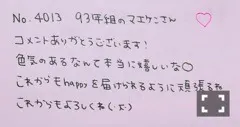 No. 4013 93年組のマエケンさん
コメントありがとうございます!
色気のあるなんて本当に嬉しいな○
これからもhappyを届けられるように頑張るね
これからもよろしくね(・ぶ・)